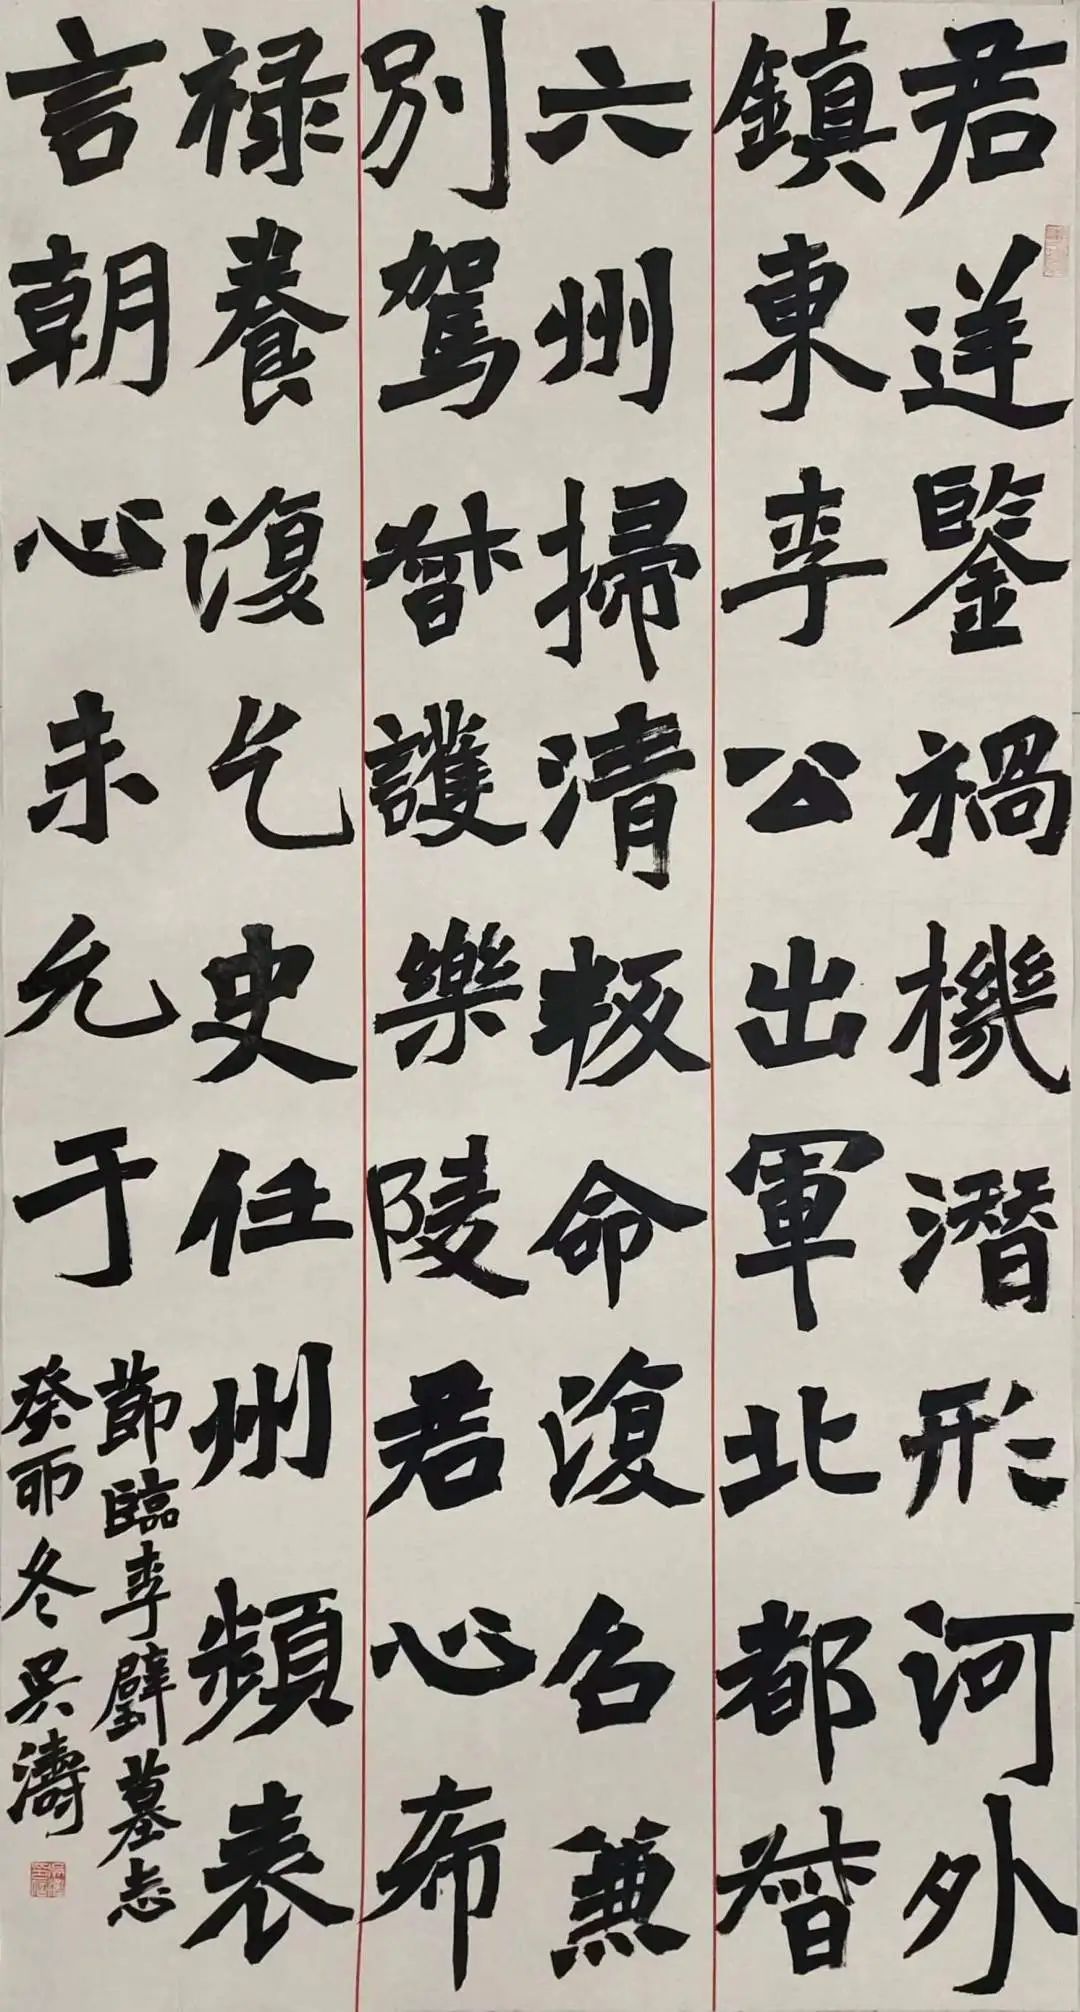 君逆鑒禍機潜形河外
鎮東李公出軍北都督
六州掃清叛命復名兼
別駕督護樂陵君心布
禄養復乞史任州頻表
言朝心未允于
節臨李璧墓志
癸卯冬吴濤